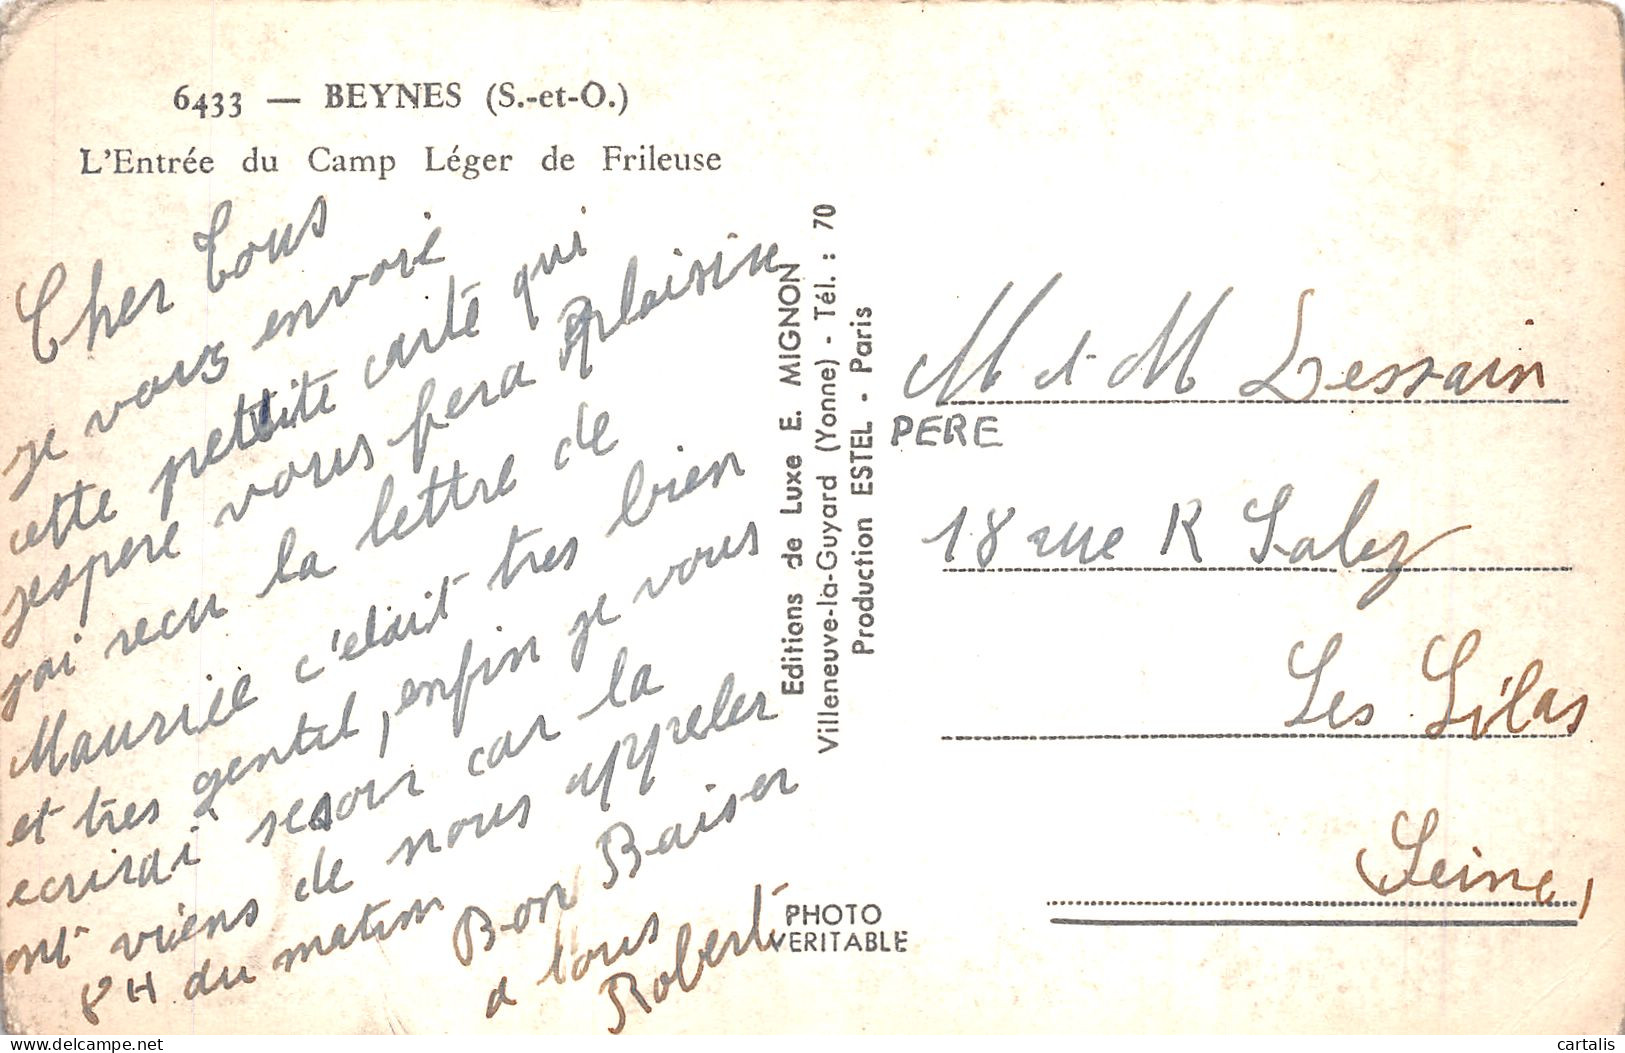 6433 — BEYNES (S.-et-O.)
L'Entrée du Camp Léger de Frileuse
Cher Tous
je vous envoie
cette petite carte qui
jespere vous fera plaisire
jai recu la lettre de
Maurice c'etait tres bien
et tres gentil, enfin je vous
ecrirai se soir car la
ont viens de nous appeler
8 H du matin
Bon Baiser
a tous
Robert
Editions de Luxe E. MIGNON
Villeneuve-la-Guyard (Yonne) - Tél. : 70
Production ESTEL - Paris
PHOTO
VERITABLE
M et M Dessain
PERE
18 rue R Salez
Les Lilas
Seine,
cartalis